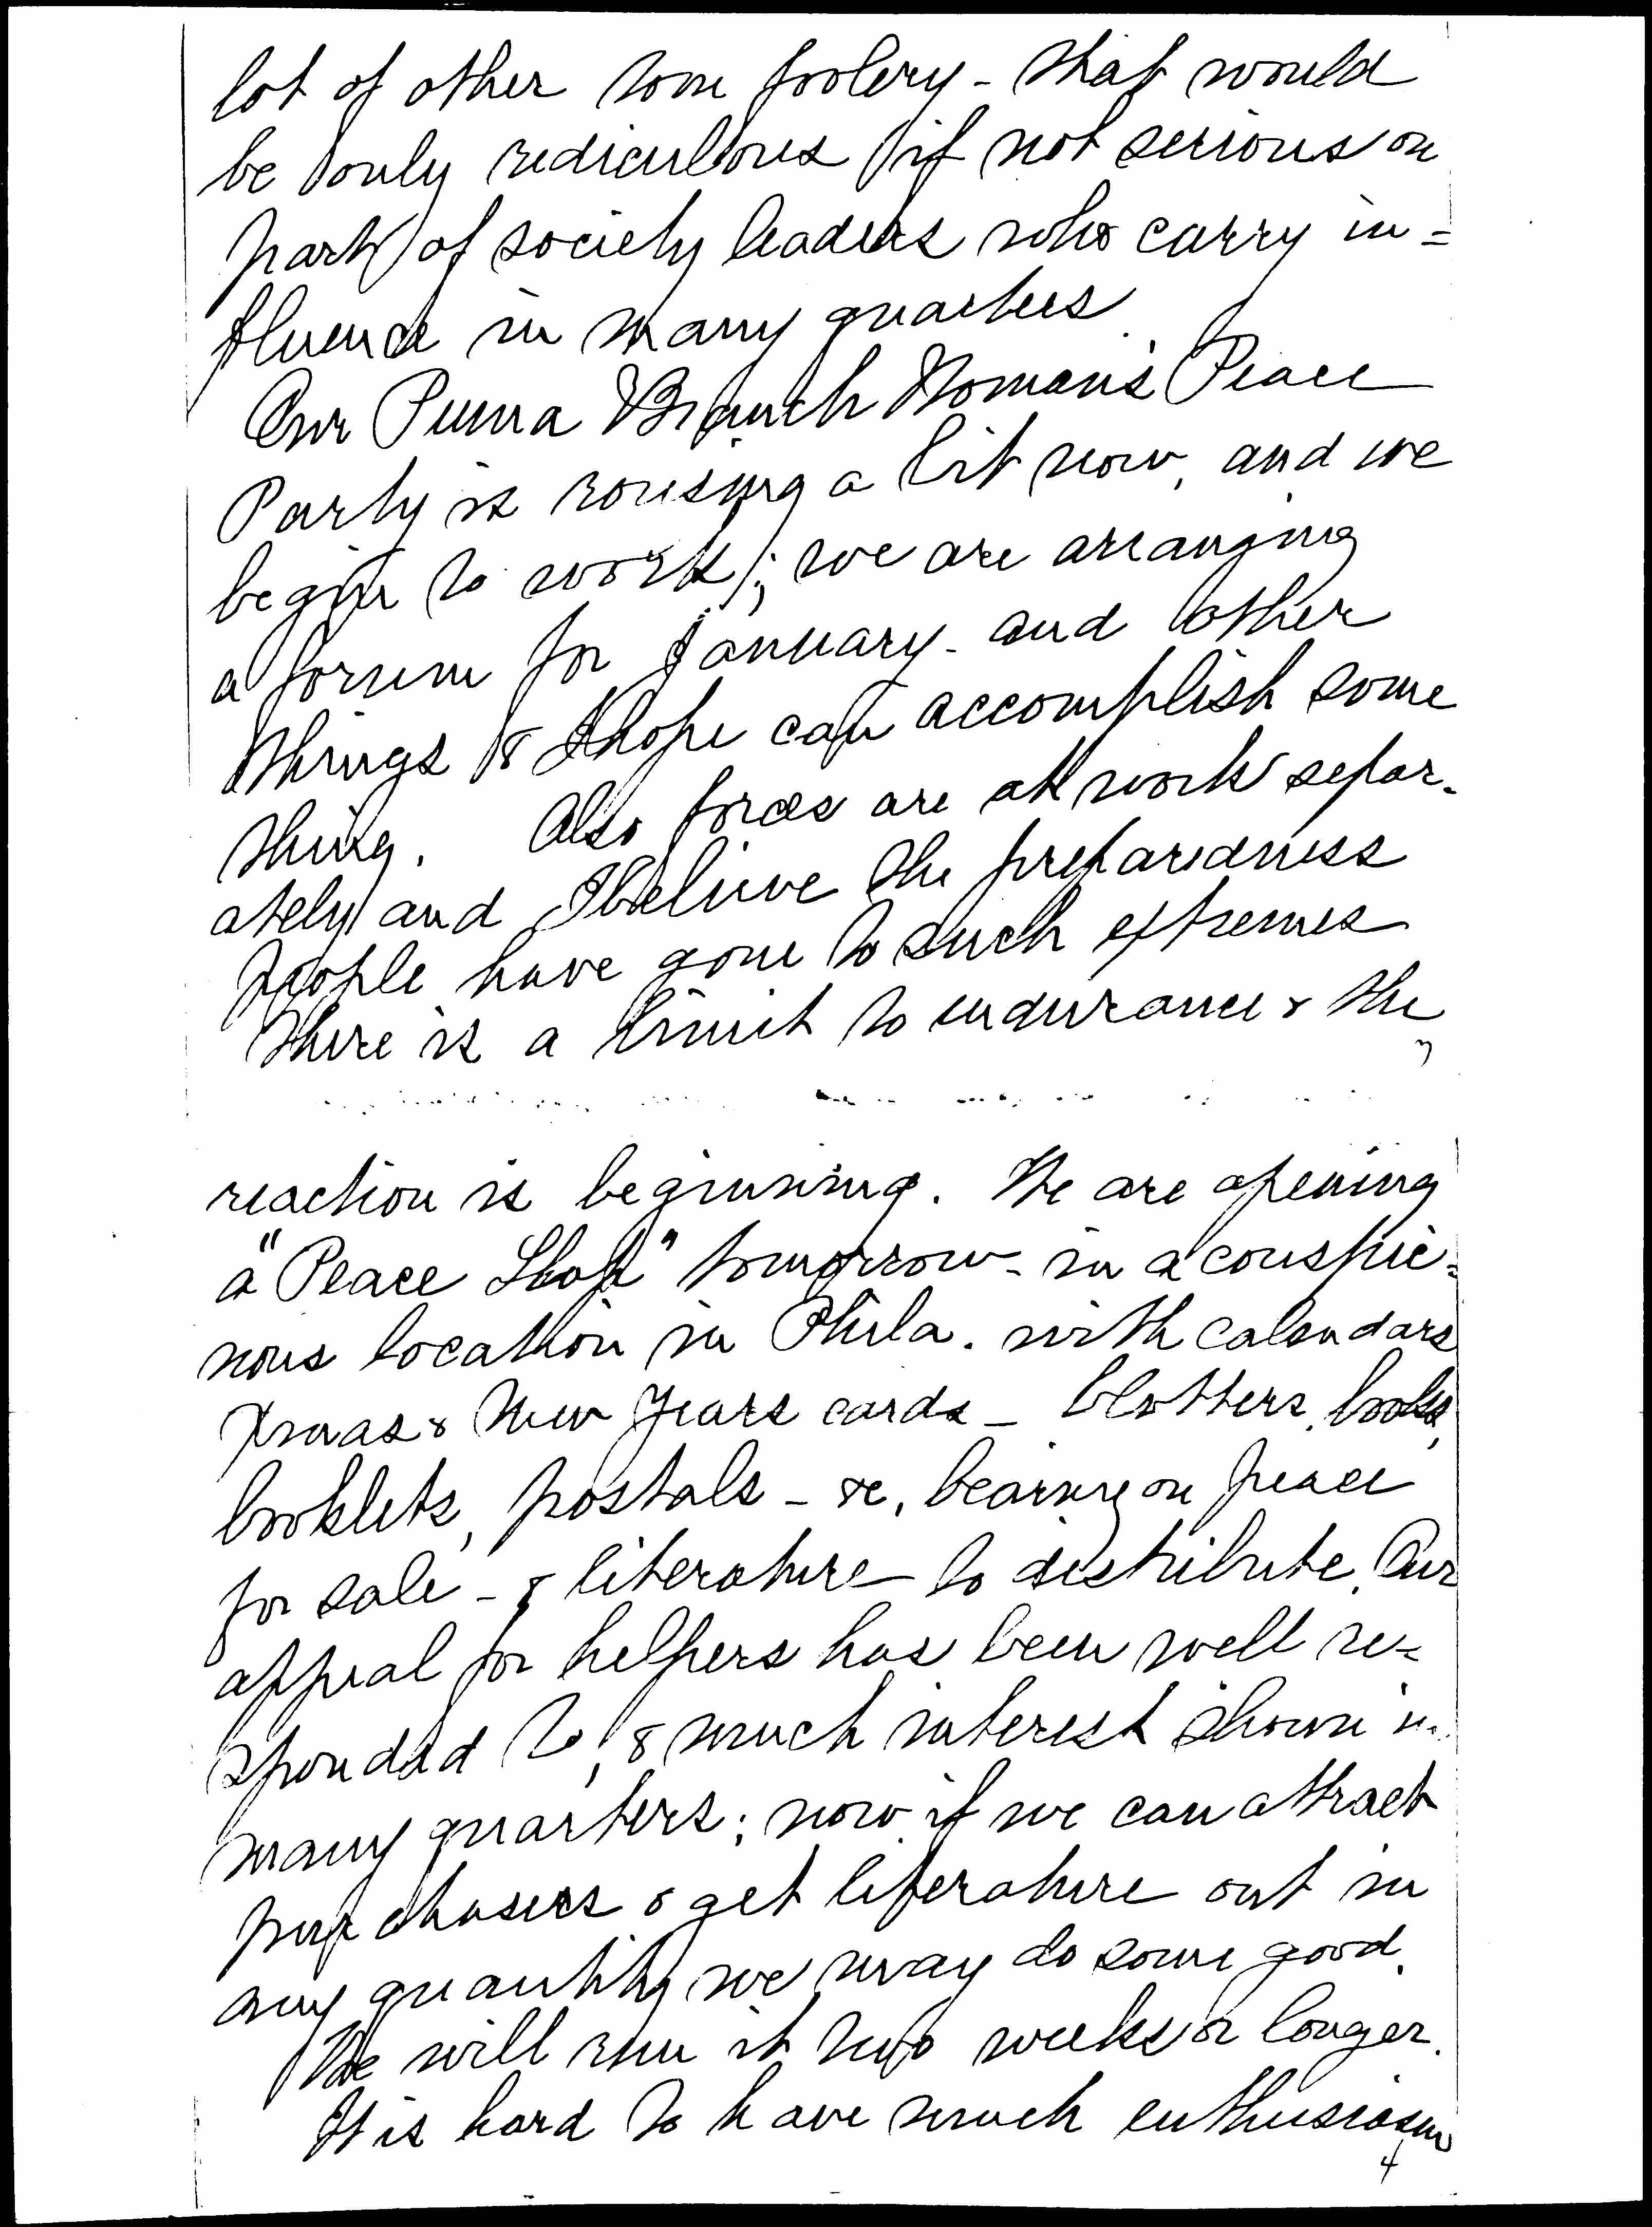 lot of other tom foolery - that would
be only rediculous if not serious on
part of society leaders who carry in=
fluence in many quarters
Our Penna Branch Woman's Peace
Party is rousing a bit now, and we
begin to work; we are arranging
a forum for January - and other
things & I hope can accomplish some
thing. Also forces are at work separ-
ately and I believe the preparedness
people have gone to such extremes
there is a limit to endurance & the
3
reaction is beginning. We are opening
a "Peace Shop" tomorrow - in a conspic=
uous location in Phila. with calendars
Xmas & New Years cards - blotters, books,
booklets, postals - &c, bearing on peace
for sale - & literature to distribute. Our
appeal for helpers has been well re=
sponded to, & much interest shown in
many quarters; now if we can attract
purchasers & get literature out in
any quantity we may do some good.
We will run it two weeks or longer.
It is hard to have much enthusiasm
4